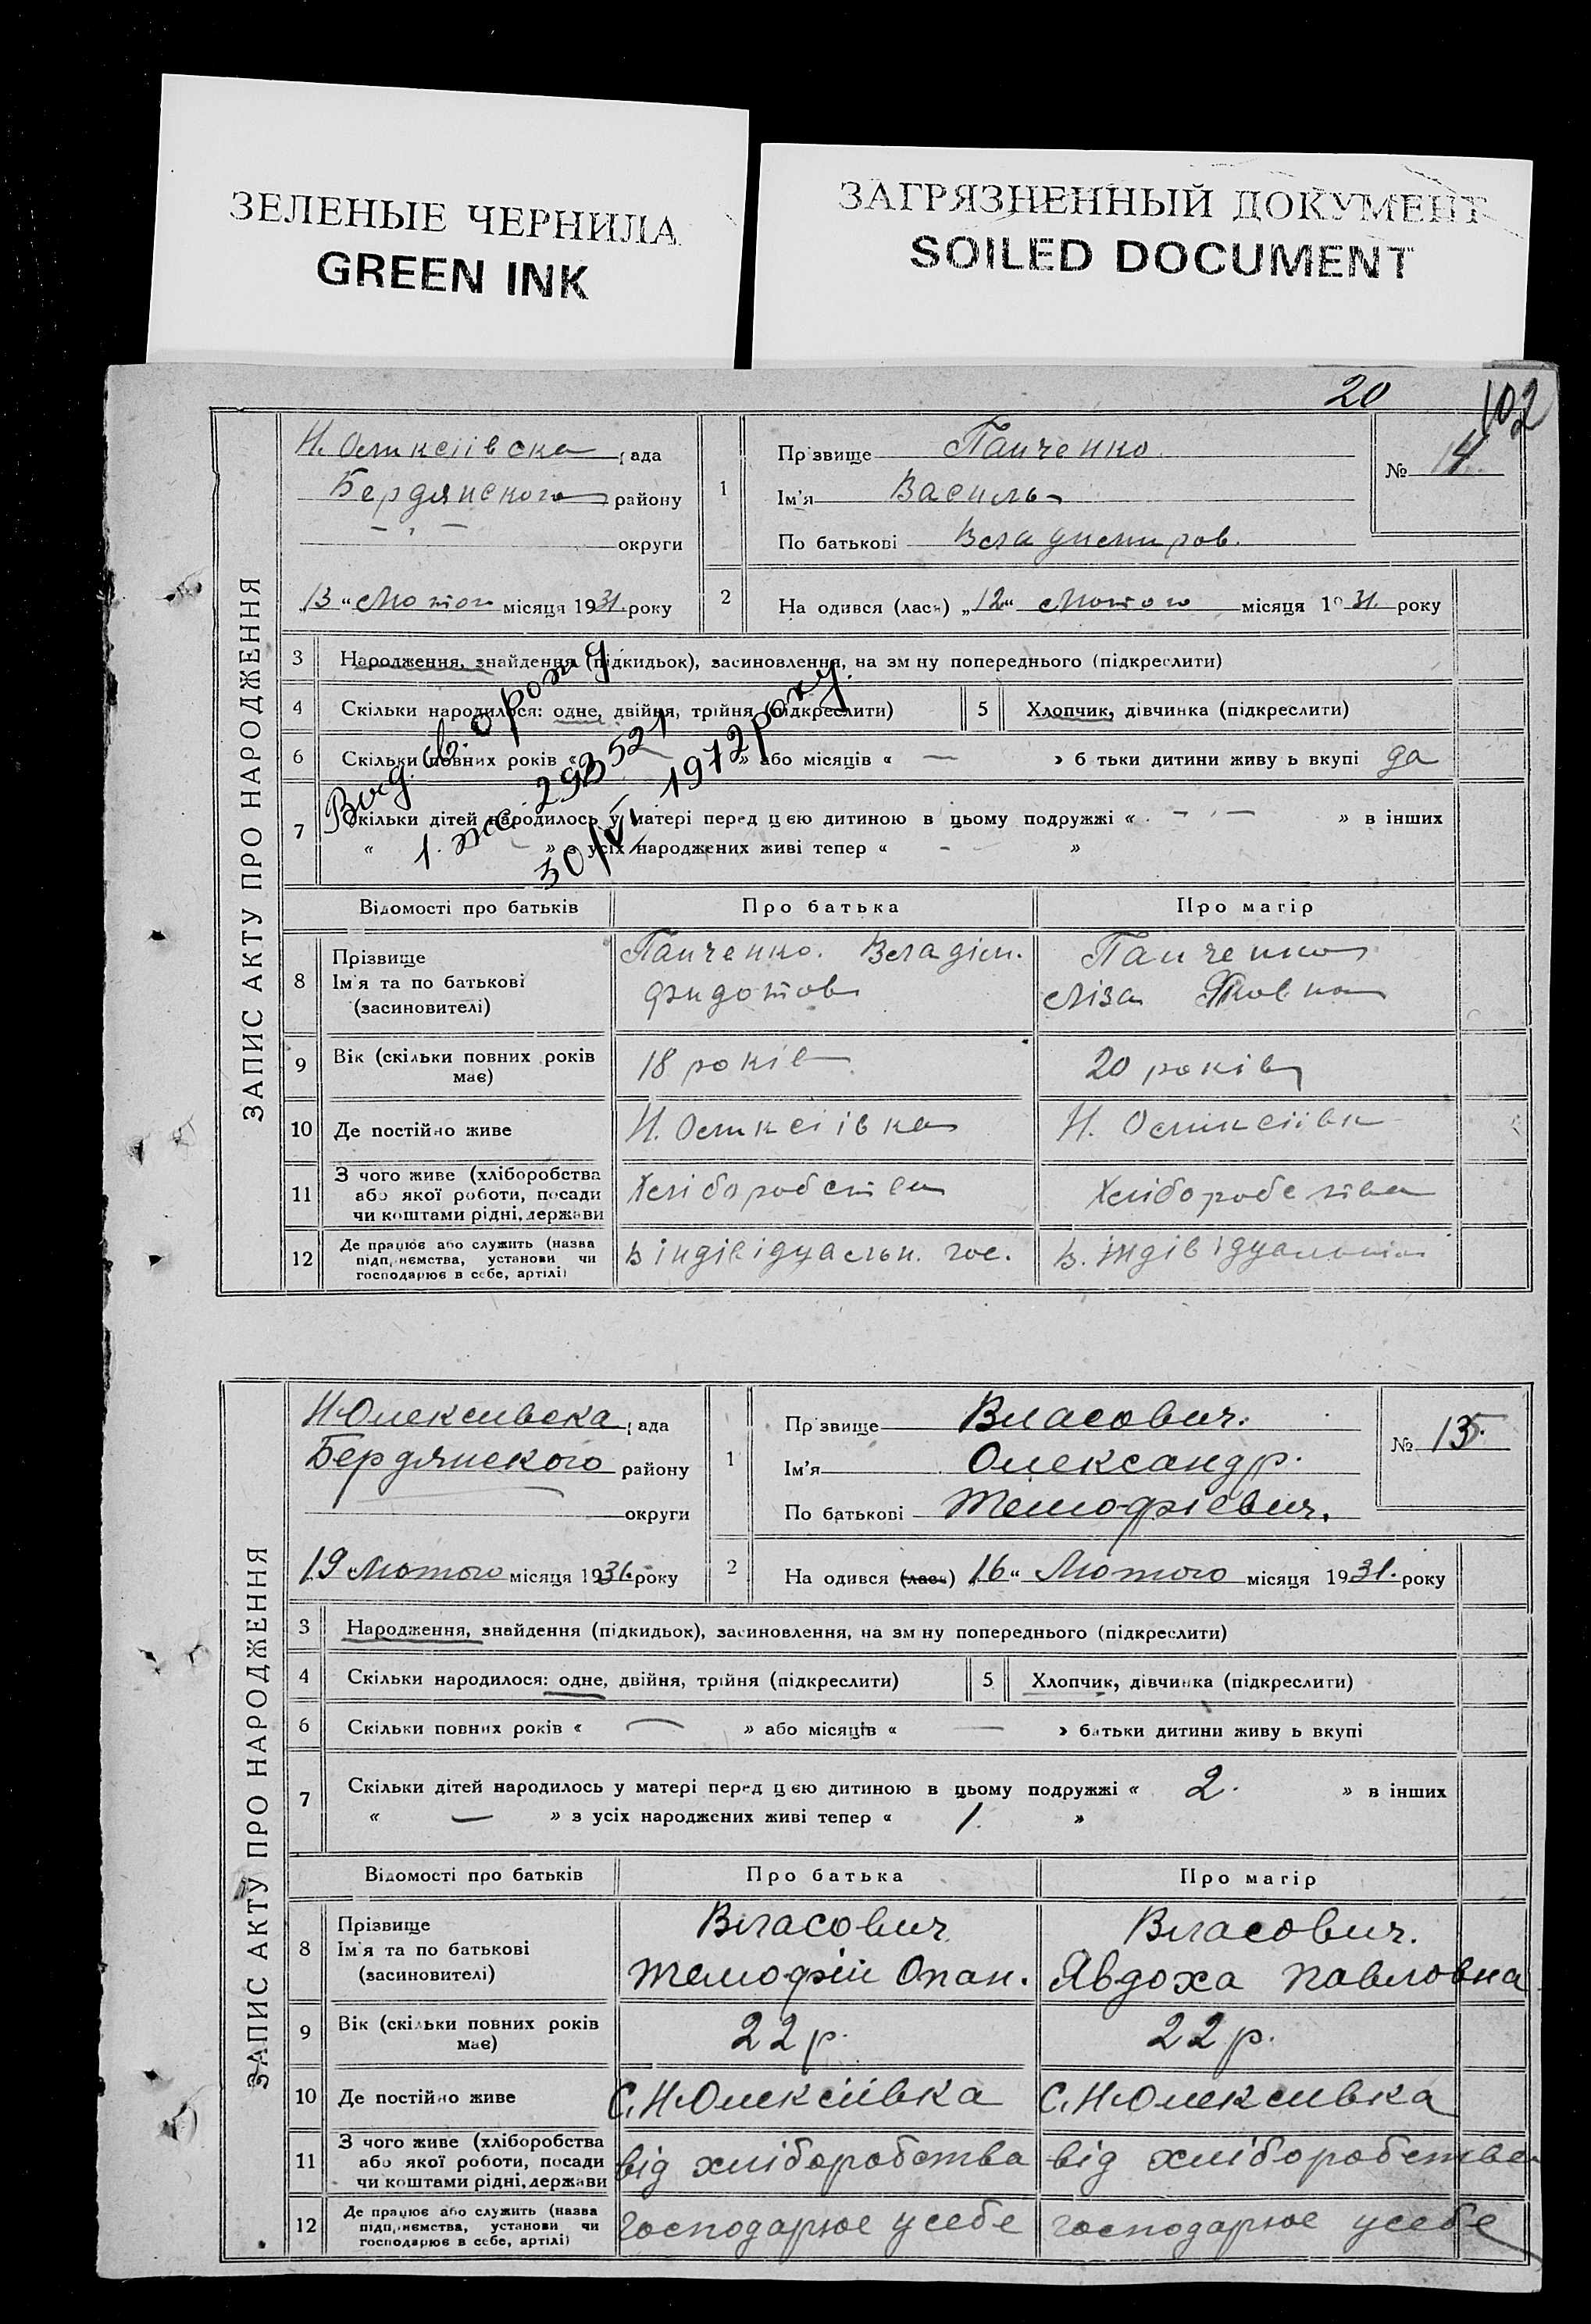 ЗЕЛЕНЫЕ ЧЕРНИЛА
GREEN INK
ЗАГРЯЗНЕННЫЙ ДОКУМЕНТ
SOILED DOCUMENT
20
102
ЗАПИС АКТУ ПРО НАРОДЖЕННЯ
рада
Бердянского району
округи
13 "Лютого місяця 1931 року
1
Прізвище Панченко
Ім'я Василь
По батькові Владимиров.
№ 14
2
На одився (лась) „12" Лютого місяця 1931. року
3 Народження, знайдення (підкидьок), засиновлення, на зм ну попереднього (підкреслити)
4 Скільки народилося: одне, двійня, трійня (підкреслити)
5 Хлопчик, дівчинка (підкреслити)
6 Скільки повних років « — » або місяців « — » б тьки дитини живу ь вкупі да
7 Скільки дітей народилось у матері перед цією дитиною в цьому подружжі « - , - » в інших
« — » з усіх народжених живі тепер « - »
293521
30/VI 1972 року.
Відомості про батьків Про батька Про матір
8 Прізвище
Ім'я та по батькові
(засиновителі)
Панченко. Владім.
Федотов
Панченко
Ліза Яковна
9 Вік (скільки повних років має)
18 років
20 років
10 Де постійно живе
Н. Олексіівка
Н. Олексіівк
11 З чого живе (хліборобства
або якої роботи, посади
чи коштами рідні, держави
Хліборобства
Хліборобства
12 Де працює або служить (назва
підприємства, установи чи
господарює в себе, артілі)
В індівідуальн. гос.
В. індівідуальном
ЗАПИС АКТУ ПРО НАРОДЖЕННЯ
Н-Олексивска рада
Бердянского району
округи
19 Лютого місяця 1931. року
1
Прізвище Власович.
Ім'я Олександр.
По батькові Темофіевич.
№ 15.
2
На одився (лась) 16" Лютого місяця 1931. року
3 Народження, знайдення (підкидьок), засиновлення, на зм ну попереднього (підкреслити)
4 Скільки народилося: одне, двійня, трійня (підкреслити)
5 Хлопчик, дівчинка (підкреслити)
6 Скільки повних років « — » або місяців « — » батьки дитини живу ь вкупі
7 Скільки дітей народилось у матері перед цією дитиною в цьому подружжі « 2. » в інших
« — » з усіх народжених живі тепер « 1. »
Відомості про батьків Про батька Про матір
8 Прізвище
Ім'я та по батькові
(засиновителі)
Власович
Темофій Опан.
Власович.
Явдоха Павловна
9 Вік (скільки повних років має)
22 р.
22 р.
10 Де постійно живе
С. Н-Олексіівка
С. Н-Олексивка
11 З чого живе (хліборобства
або якої роботи, посади
чи коштами рідні, держави
від хліборобства
від хліборобства
12 Де працює або служить (назва
підприємства, установи чи
господарює в себе, артілі)
господарює у себе
господарює у себе